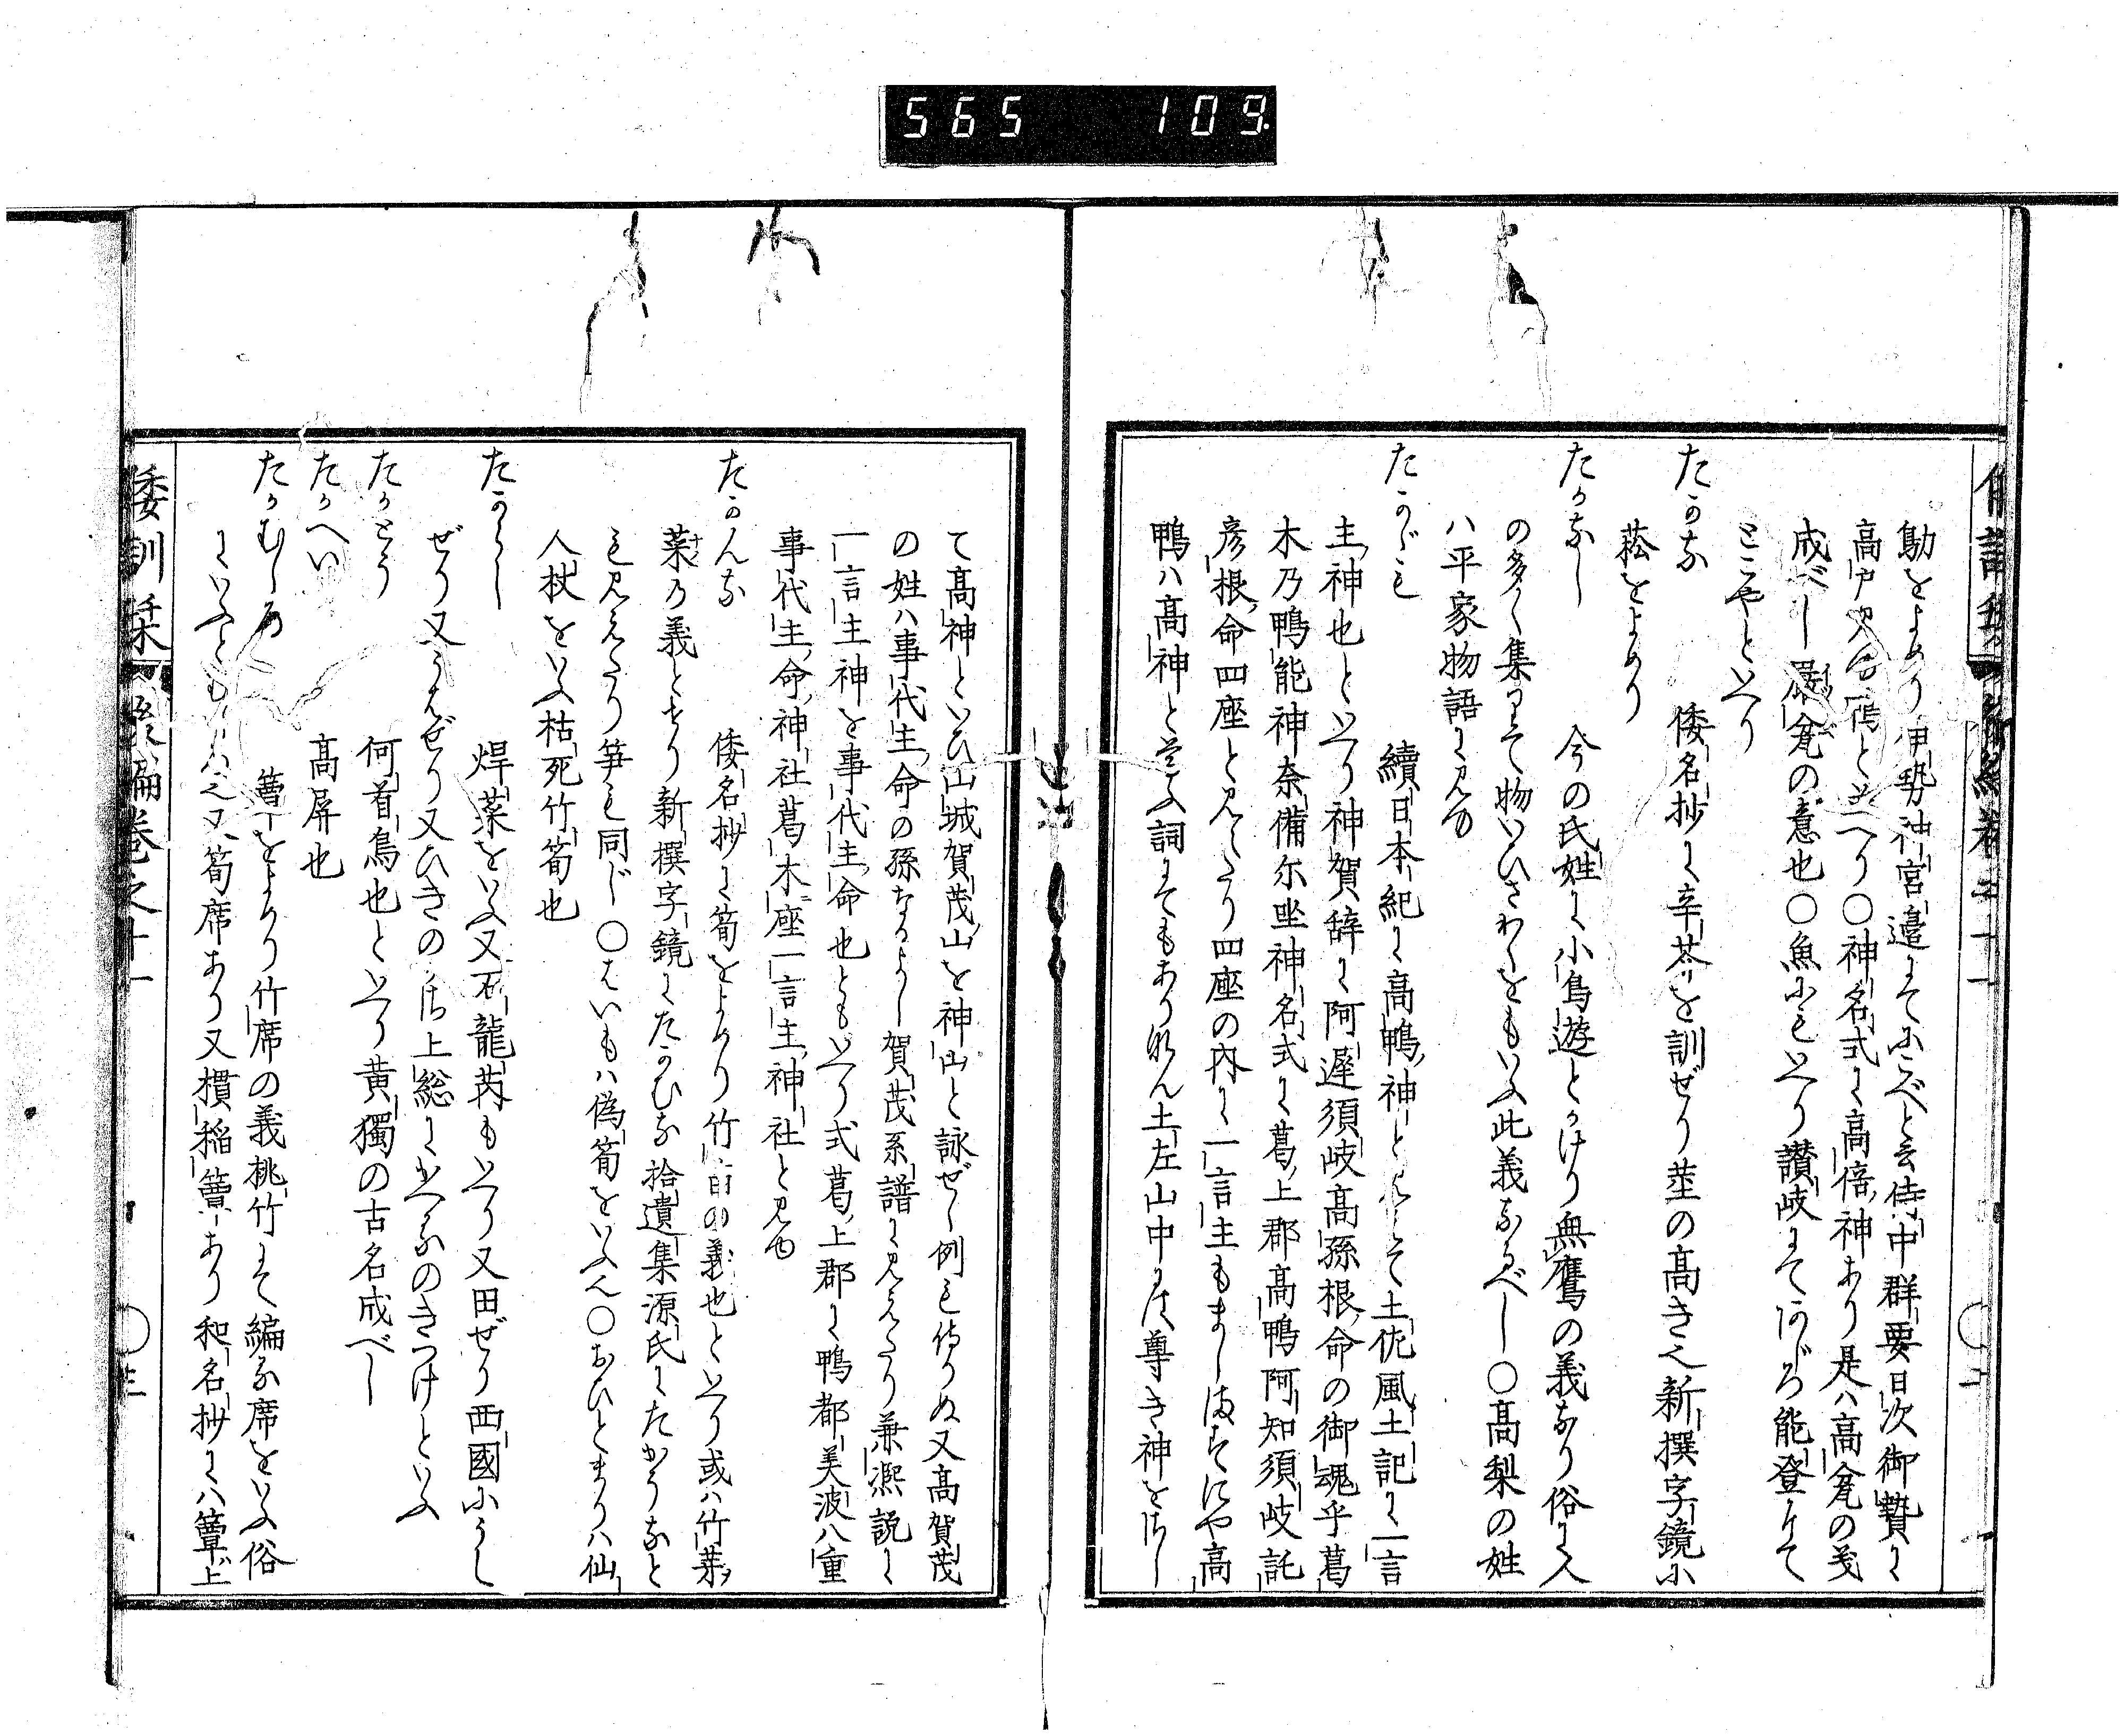 565 109
勛をよめり伊勢神宮邊にてふくべと云侍中群要日次御贄に
高戸次冶鴈といへり〇神名式に高倍神あり是ハ高瓮の義
成べし嚴瓮の意也〇魚にもいへり讃岐にてあぶろ能登にて
ミこやといへり
たかな 倭名抄に辛芥を訓ぜり莖の高き也新撰字鏡に
菘をよめり
たかなし 今の氏姓に小鳥遊とかけり無鷹の義なり俗に人
の多く集りて物いひさわくをもいふ此義なるべし〇高梨の姓
ハ平家物語に見ゆ
たかがも 續日本紀に高鴨神と見えて土佐風土記に一言
主神也といへり神賀辞に阿遲須岐高孫根命の御魂乎葛
木乃鴨能神奈備尓坐神名式に葛上郡高鴨阿知須岐託
彦根命四座と見えたり四座の内に一言主もましますにや高
鴨ハ高神と崇ふ詞にてもありなん土左山中に尊き神をさし
て高神といひ山城賀茂山を神山と詠ぜし例も侍りぬ又高賀茂
の姓ハ事代主命の孫なるよし賀茂系譜に見えたり兼凞説に
一言主神を事代主命也ともいへり式葛上郡に鴨都美波八重
事代主命神社葛木座一言主神社と見ゆ
たかんな 倭名抄に筍をよめり竹菌の義也といへり或ハ竹葉
菜の義とせり新撰字鏡にたかむな拾遺集源氏にたかうなと
も見えたり笋も同じ〇はいもハ偽筍をいふ也〇おひとまりハ仙
人杖をいふ枯死竹筍也
たからし 焊菜をいふ又石龍芮もいへり又田ぜり西國にうし
ぜり又うまぜり又ひきのかさ上総にかへるのきつけといふ
たかとう 何首烏也といへり黄獨の古名成べし
たかへい 高屏也
たかむしろ 簟をよめり竹席の義桃竹にて編る席をいふ俗
にいふともしへ之又筍席あり又樻稲簟あり和名抄にハ簟上
倭訓栞 後編巻之十一 〇三